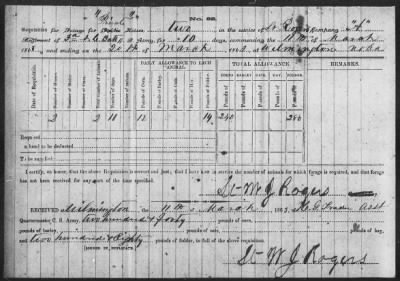 No. 33.
Requisition for Forage for Private Horses two in the service of Lt Rogers Company "A"
Army for 10 days, commencing the 11th of March
and ending on the 20th of March 186 at Wilmington N.C.
Date of Requisition.
Number of Horses.
Number of Mules.
Number of Oxen.
Total Number of Animals.
Number of Days.
DAILY ALLOWANCE TO EACH ANIMAL.
Pounds of Corn.
Pounds of Barley.
Pounds of Oats.
Pounds of Hay.
Pounds of Fodder.
TOTAL ALLOWANCE.
CORN.
BARLEY.
OATS.
HAY.
FODDER.
REMARKS.
2 2 10 12 14 240 280
Required
on hand to be deducted
To be supplied
I certify, on honor, that the above Requisition is correct and just; that I have now in service the number of animals for which forage is required, and that forage
has not been received for any part of the time specified.
Lt W J Rogers
RECEIVED at Wilmington on 11th of March 1863, of
Quartermaster C. S. Army, two hundred & forty pounds of corn,
pounds of barley, pounds of oats, pounds of hay,
and two hundred & Eighty pounds of fodder, in full of the above requisition.
[SIGNED IN DUPLICATE.]
Lt W J Rogers